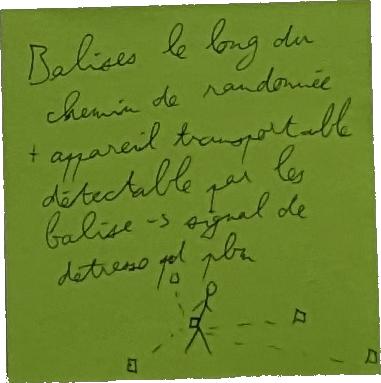 Balises le long du
chemin de randonnée
+ appareil transportable
détectable par les
balise -> signal de
detresse qd pbm